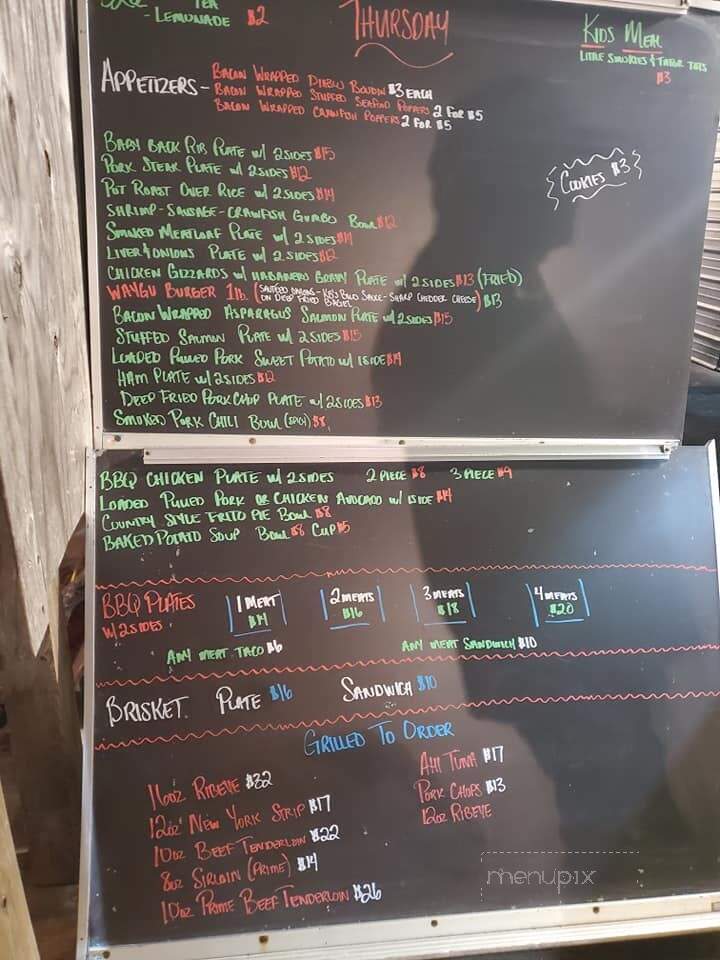 TEA
- LEMONADE $2
THURSDAY
KIDS MEAL
LITTLE SMOKIES & TATOR TOTS
$3
APPETIZERS - BACON WRAPPED DIABLO BOUDIN $3 EACH
BACON WRAPPED STUFFED SEAFOOD POPPERS 2 FOR $5
BACON WRAPPED CRAWFISH POPPERS 2 FOR $5
COOKIES $3
BABY BACK RIB PLATE W/ 2 SIDES $15
PORK STEAK PLATE W/ 2 SIDES $12
POT ROAST OVER RICE W/ 2 SIDES $14
SHRIMP-SAUSAGE-CRAWFISH GUMBO BOWL $12
SMOKED MEATLOAF PLATE W/ 2 SIDES $14
LIVER & ONIONS PLATE W/ 2 SIDES $12
CHICKEN GIZZARDS W/ HABANERO GRAVY PLATE W/ 2 SIDES $13 (FRIED)
WAYGU BURGER 1 lb. (SAUTEED ONIONS - BBQ SAUCE - SHARP CHEDDER CHEESE) $13
ON DEEP FRIED BAGEL
BACON WRAPPED ASPARAGUS SALMON PLATE W/ 2 SIDES $15
STUFFED SALMON PLATE W/ 2 SIDES $15
LOADED PULLED PORK SWEET POTATO W/ 1 SIDE $14
HAM PLATE W/ 2 SIDES $12
DEEP FRIED PORK CHOP PLATE W/ 2 SIDES $13
SMOKED PORK CHILI BOWL (SPICY) $8
BBQ CHICKEN PLATE W/ 2 SIDES 2 PIECE $8 3 PIECE $9
LOADED PULLED PORK OR CHICKEN AVOCADO W/ 1 SIDE $14
COUNTRY STYLE FRITO PIE BOWL $8
BAKED POTATO SOUP BOWL $8 CUP $5
BBQ PLATES
W/ 2 SIDES
1 MEAT
$14
2 MEATS
$16
3 MEATS
$18
4 MEATS
$20
ANY MEAT TACO $6
ANY MEAT SANDWICH $10
BRISKET PLATE $16 SANDWICH $10
GRILLED TO ORDER
16oz RIBEYE $32
12oz NEW YORK STRIP $17
10oz BEEF TENDERLOIN $22
8oz SIRLOIN (PRIME) $14
10oz PRIME BEEF TENDERLOIN $26
AHI TUNA $17
PORK CHOPS $13
12oz RIBEYE
menupix